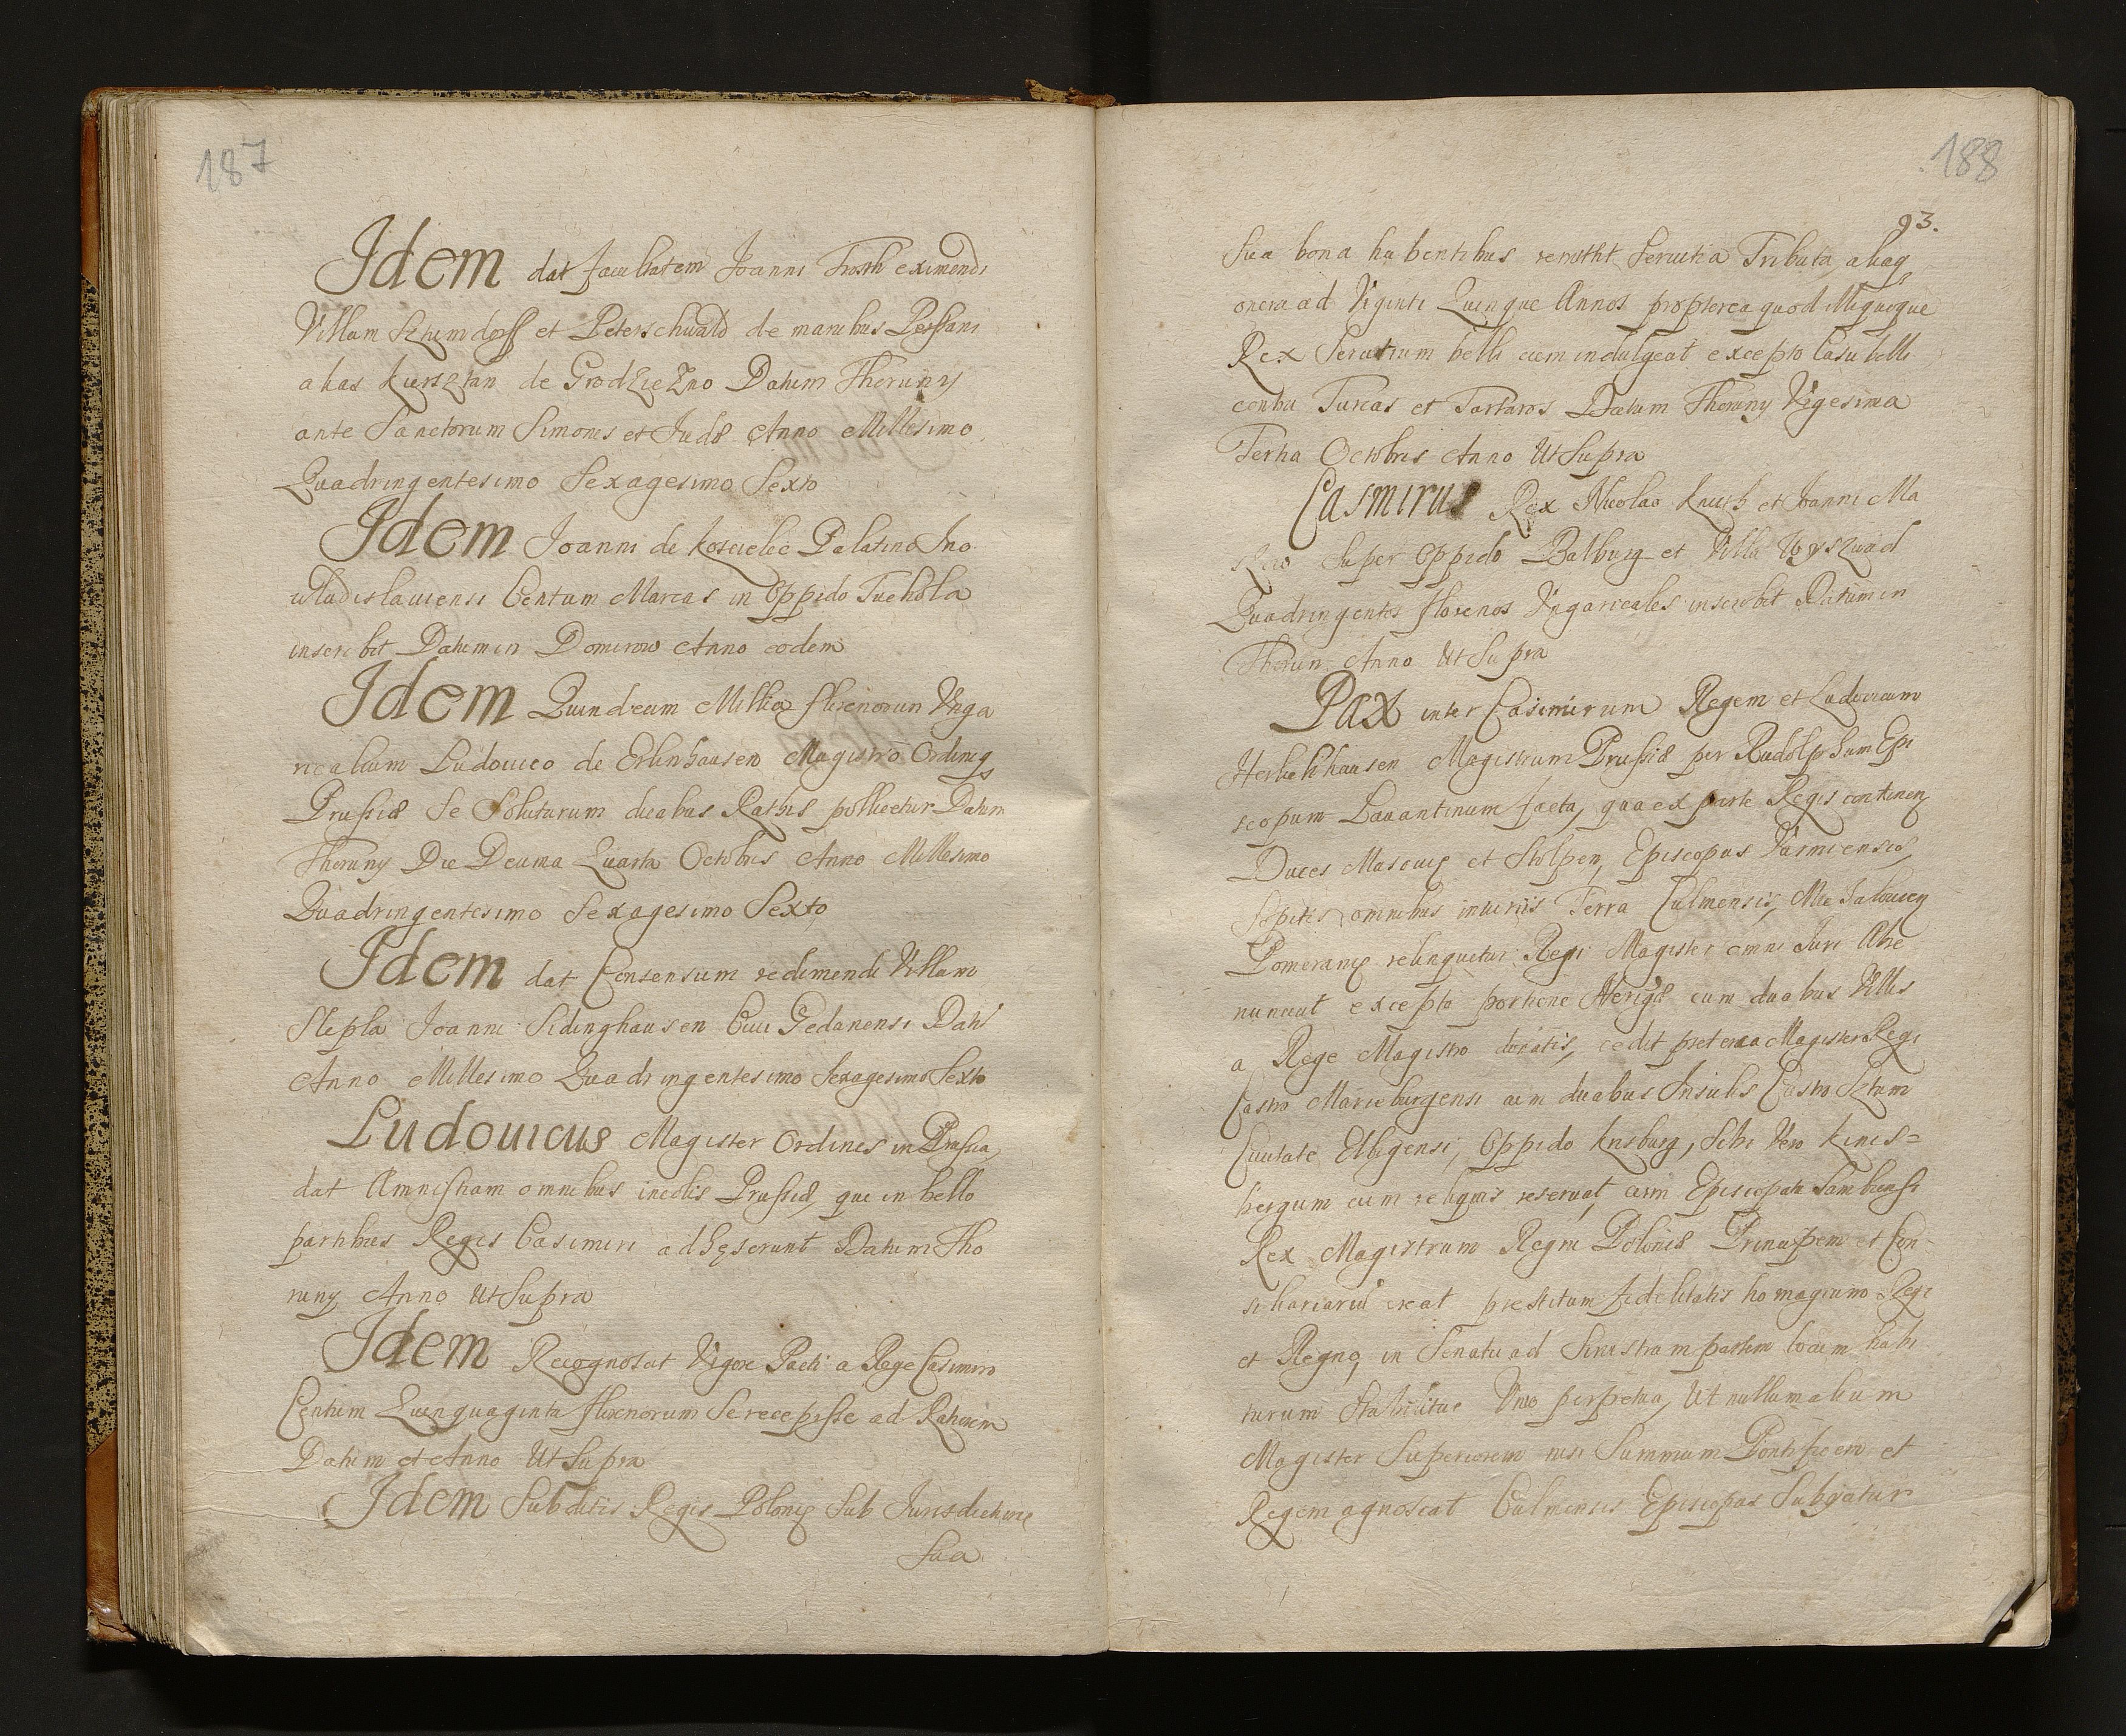 187
Idem dat facultatem Joanni Trosth eximendi
Villam Sztumdorff et Peterschwald de manibus Perssani
alias Kierszlan de Grodziezno Datum Thoruny
ante Sanctorum Simonis et Judæ Anno Millesimo
Quadringentesimo Sexagesimo Sexto
Idem Joanni de Koscielec Palatino Ino
wladislauiensi Centum Marcas in Oppido Tuchola
inscribit Datum in Domirow Anno eodem
Idem Quindecim Millia florenorum Vnga
ricalium Ludouico de Erlinhausen Magistro Ordinis
Prussiæ Se Soluturum duabus Ratis pollicetur Datum
Thoruny Die Decima Quarta Octobris Anno Millesimo
Quadringentesimo Sexagesimo Sexto
Idem dat Consensum redimendi Villam
Slepla Joanni Sidinghausen Ciui Gedanensi Dat
Anno Millesimo Quadringentesimo Sexagesimo Sexto
Ludouicus Magister Ordinis in Prussia
dat Amnistiam omnibus incolis Prussiæ, qui in bello
partibus Regis Casimiri adhęserunt Datum Tho
runy Anno Ut Supra
Idem Recognoscit Vigore Pacti a Rege Casimiro
Centum Quinquaginta florenorum Se recepisse ad Rationem
Datum et Anno Ut Supra
Idem Subditis Regis Polonię Sub Jurisdictione
Sua
188
93.
Sua bona habentibus remittit Seruitia Tributa, aliaq
onera ad Viginti Quinque Annos propterea quod illi quoque
Rex Seruitium belli eum indulgeat excepto Casu belli
contra Turcas et Tartaros Datum Thoruny Vigesima
Tertia Octobris Anno Ut Supra
Casmirus Rex Nicolao Knuth et Joanni Ma
Super Oppido Balburg et Villa
Quadringentos florenos Vngaricales inscribit Datum in
Thorun Anno Ut Supra
Pax inter Casimirum Regem et Ludouicum
Herlichhausen Magistrum Prussiæ per Rudolphum Epi
scopum Lauantinum facta, qua ex parte Regis continen
Duces Masouię et Stolpen, Episcopus Varmiensis,
Sopitis omnibus iniuriis Terra Culmensis, Michalouien
Pomeranię relinquetur Regi Magister omni Juri Abre
nunciat excepto portione Nerigæ cum duabus Villis
a Rege Magistro donatis, cedit preterea Magister Regi
Castro Marieburgensi cum duabus Insulis Castro Sztum
Ciuitate Elbigensi, Oppido Krisburg, Sibi Vero Kinis=
bergum cum reliquis reseruat, cum Episcopatu Sambiensi
Rex Magistrum Regni Poloniæ Principem et Con-
siliarium creat prestitum fidelitatis homagium Regi
et Regno, in Senatu ad Sinistram partem locum habi
turum Stabilitue Vnio perpetua, Ut nullum alium
Magister Superiorem nisi Summum Pontificem et
Regem agnoscat Culmensis Episcopus Subyatur